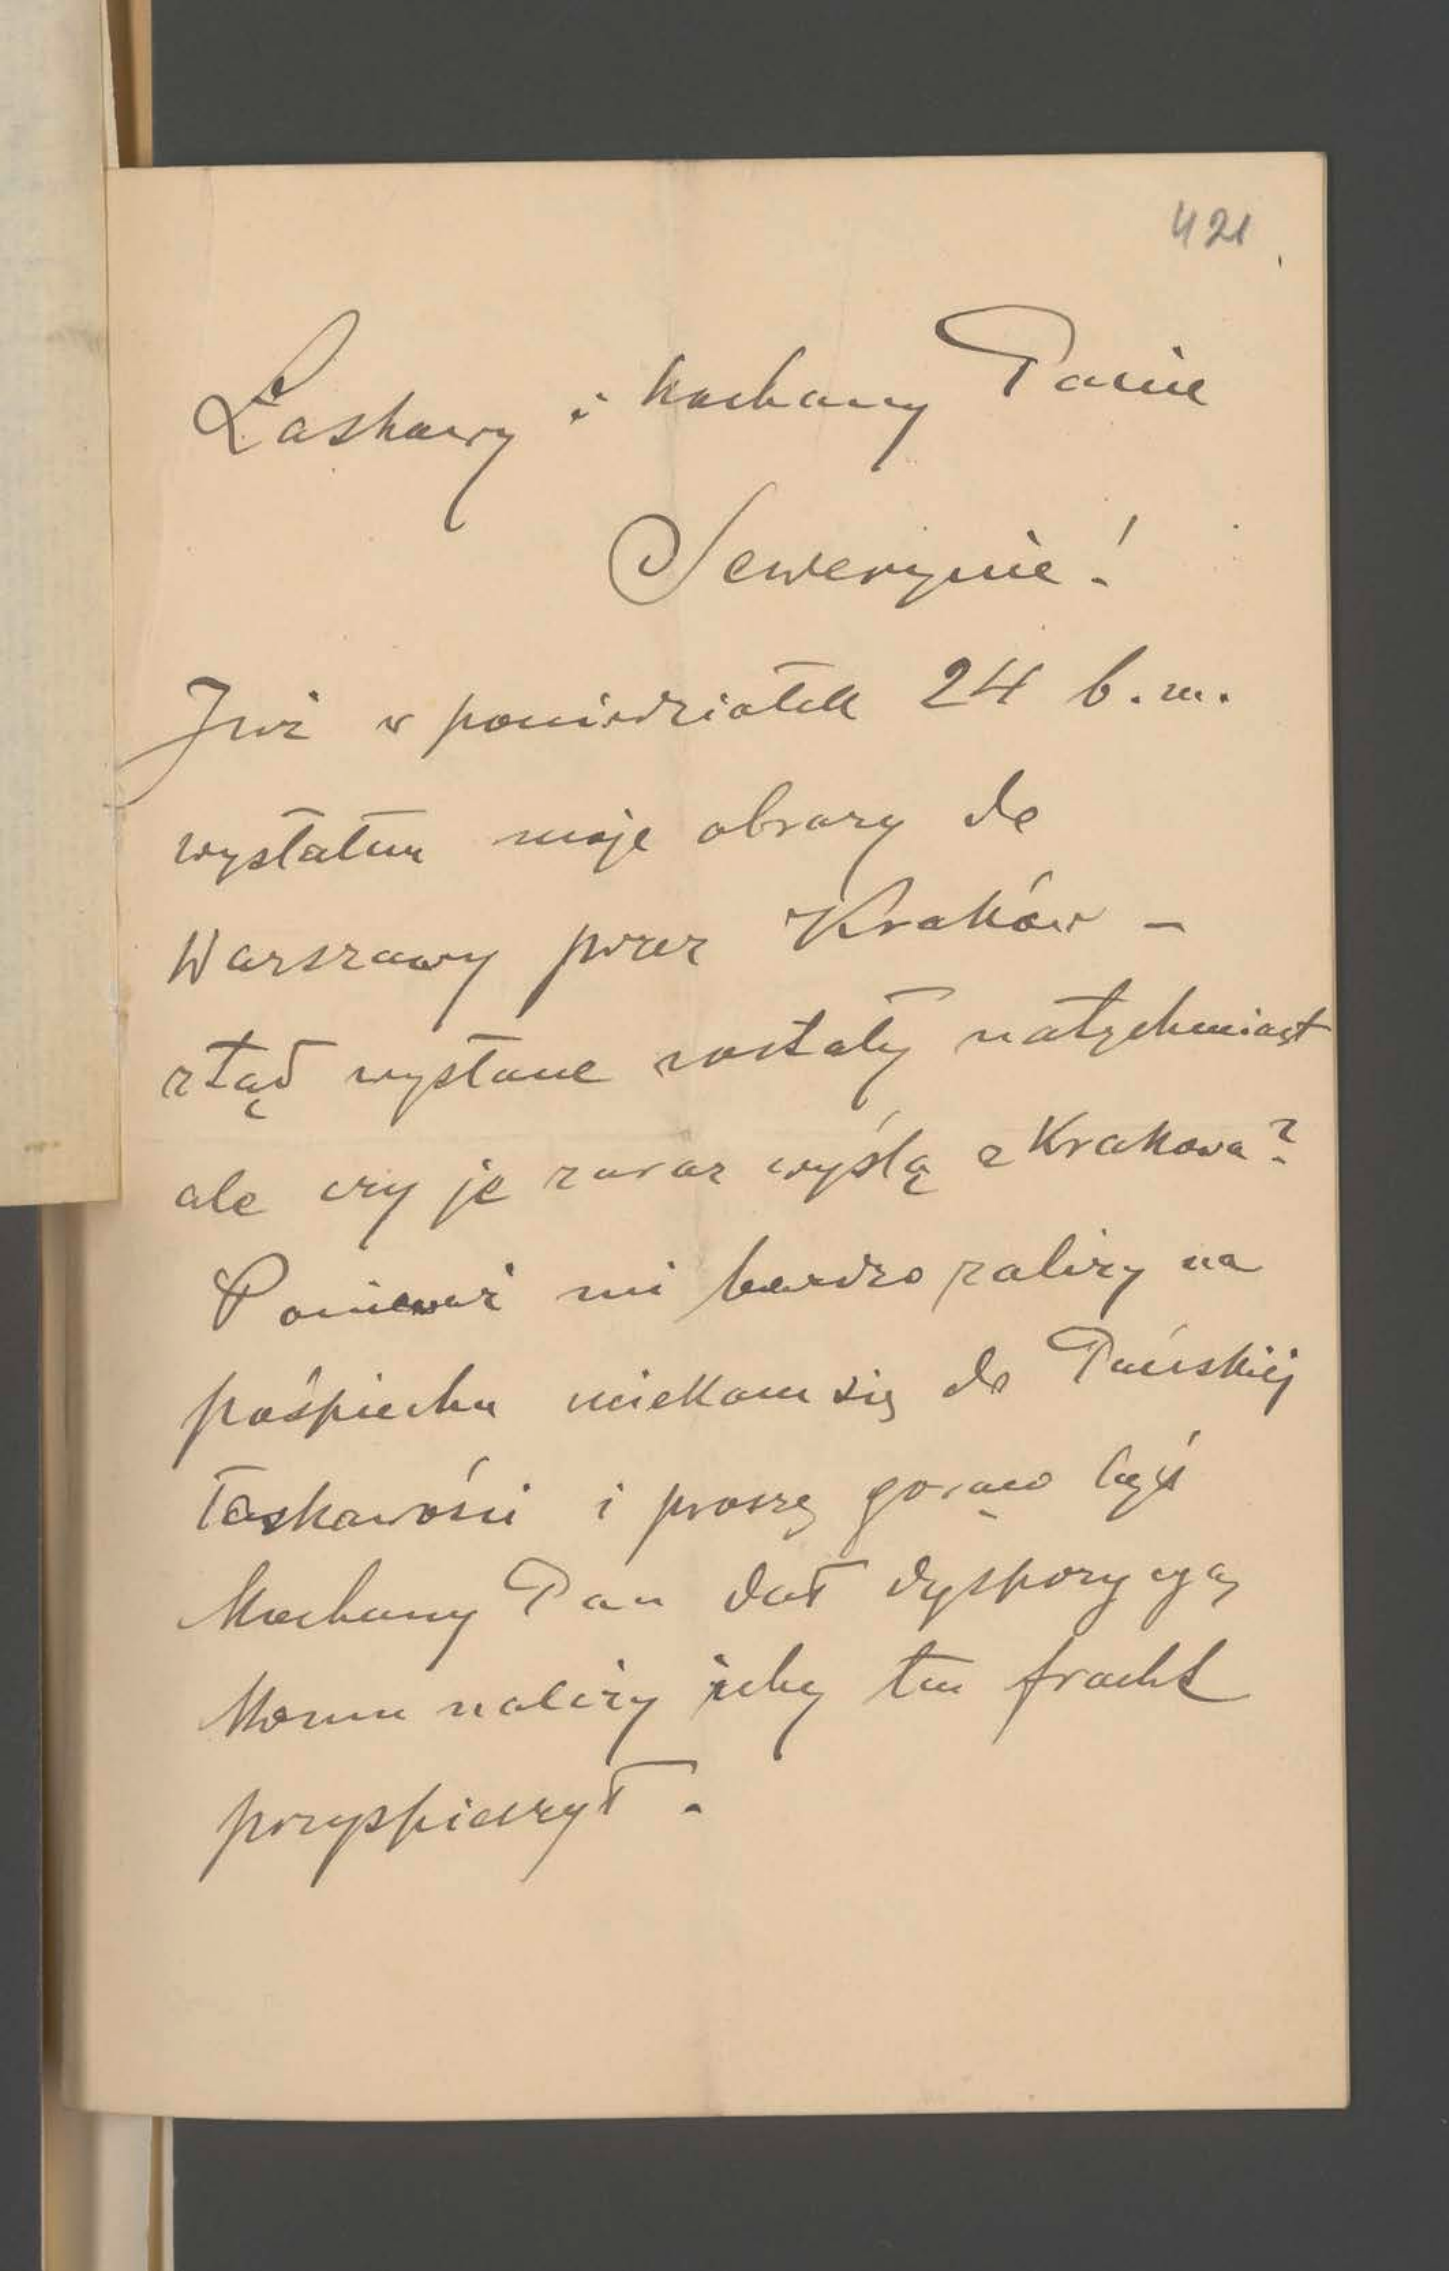 421
Łaskawy i kochany Panie
Sewerynie!
Już w poniedziałek 24 b.m.
wysłałem moje obrazy do
Warszawy przez Kraków –
ztąd wysłane zostały natychmiast
ale czy je zaraz wyślą z Krakowa?
Ponieważ mi bardzo zależy na
pośpiechu uciekam się do Pańskiéj
łaskawości i proszę gorąco byś
Kochany Pan dał dyspozycyą
komu należy żeby ten fracht
przyspieszył.